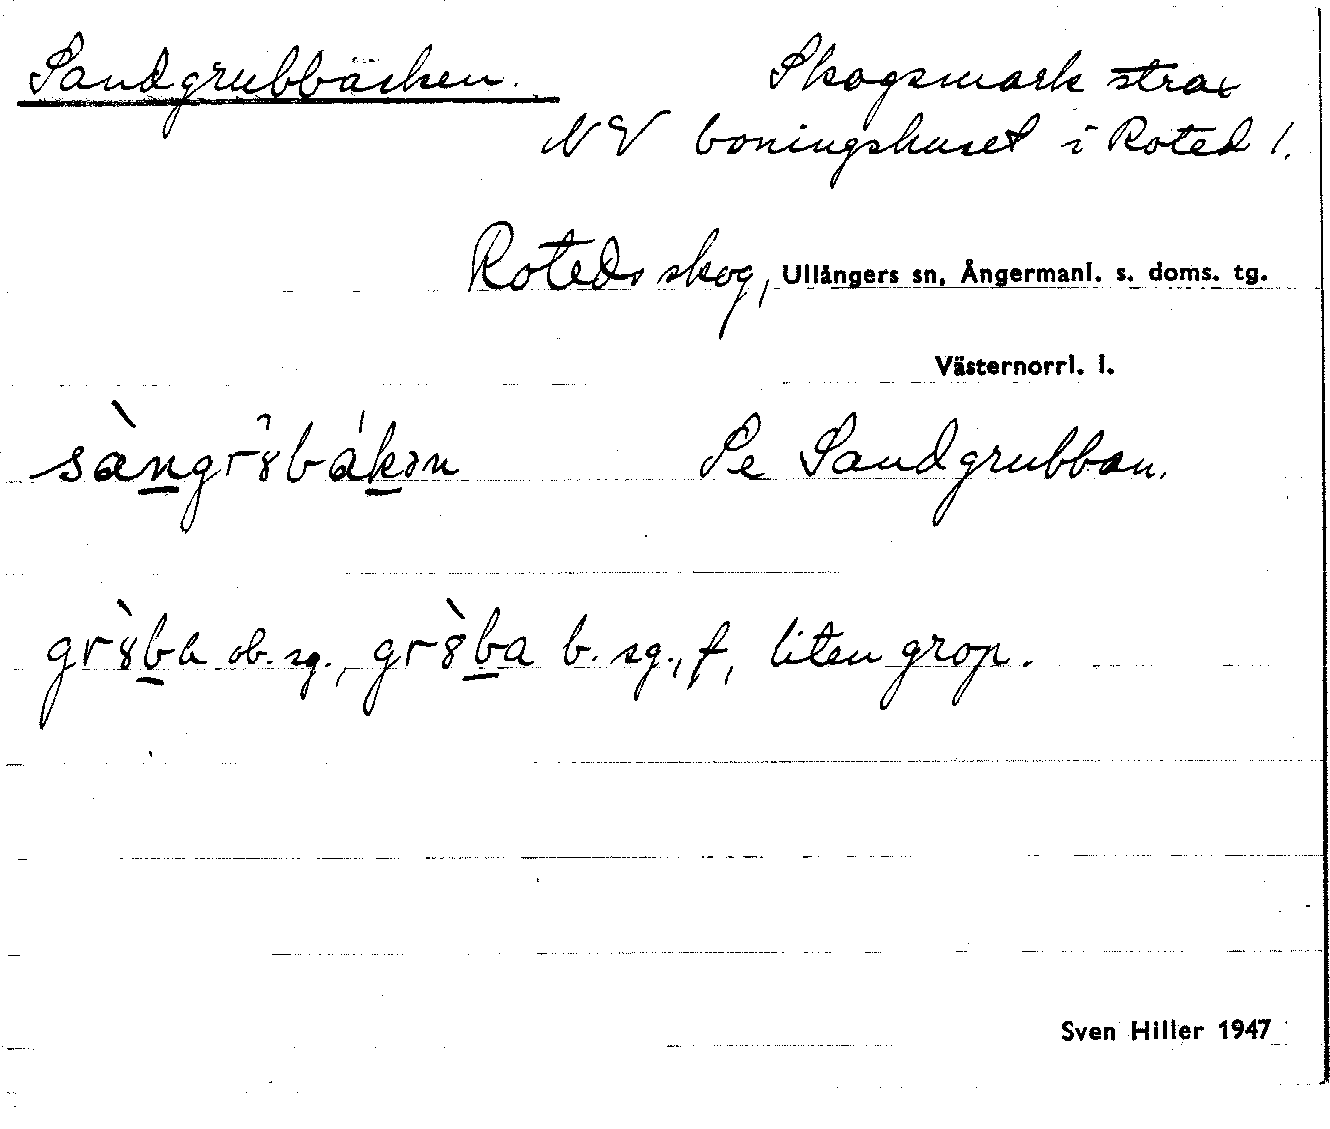 Sandgrubbäcken. Skogsmark strax
NV boningshuset i Roted 1.
Roteds skog, Ullångers sn, Ångermanl. s. doms. tg.
Västernorrl. l.
sàngr8bákən Se Sandgrubban.
gr8̀ba ob. sg., gr8̀ba b. sg., f, liten grop.
Sven Hiller 1947